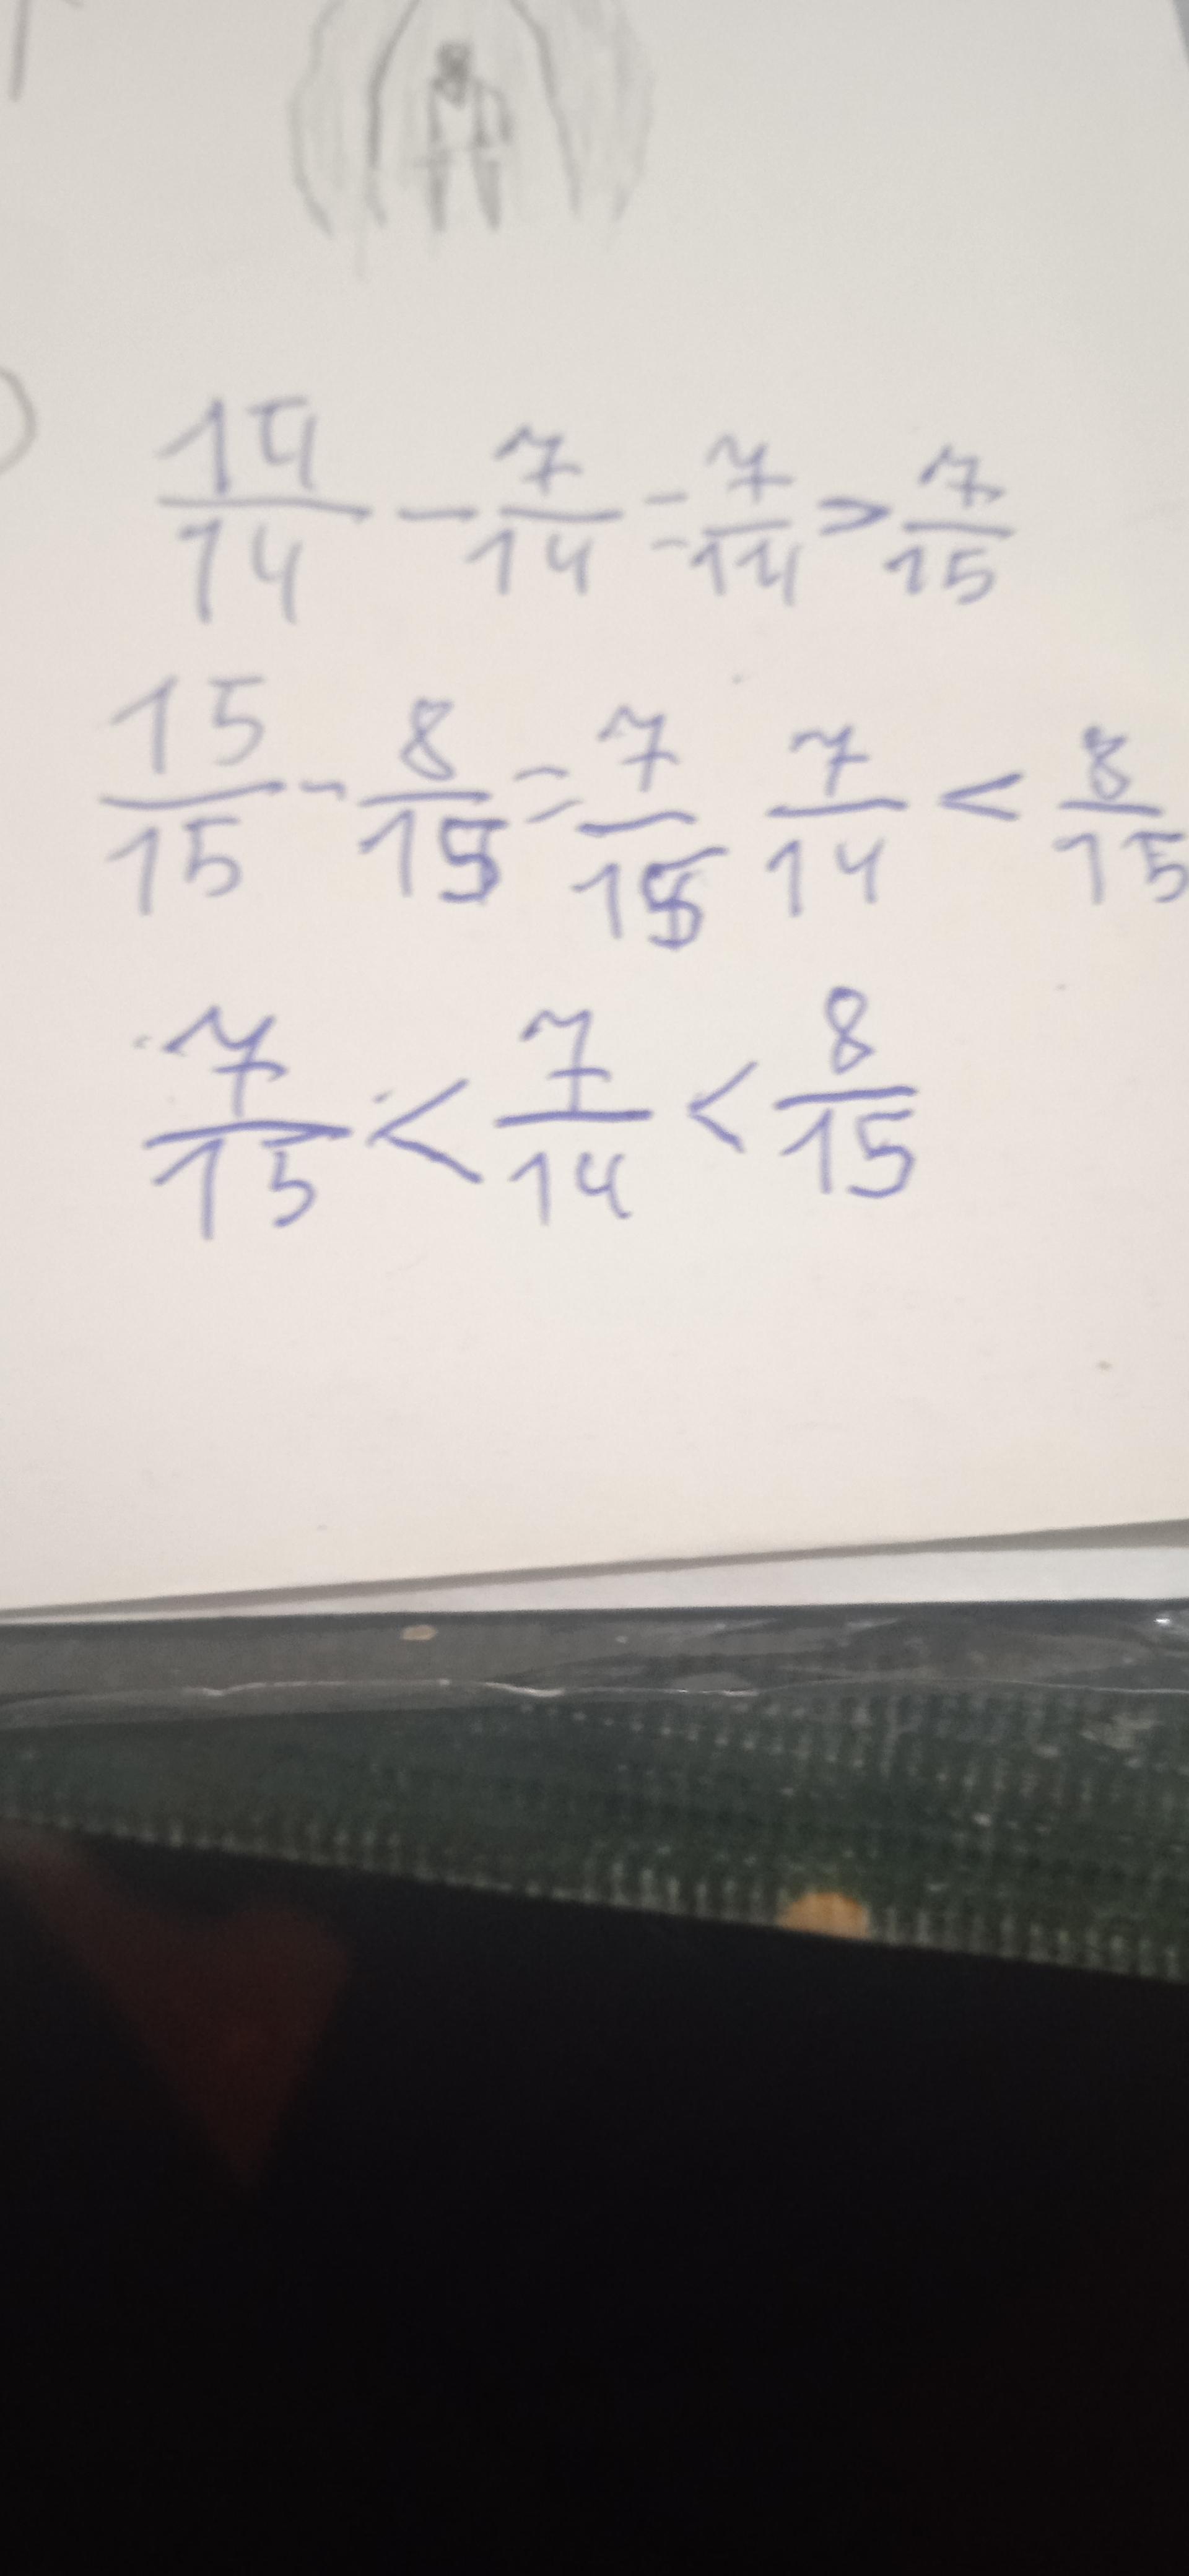 14/14 - 7/14 = 7/14 > 7/15
15/15 - 8/15 = 7/15 7/14 < 8/15
7/15 < 7/14 < 8/15